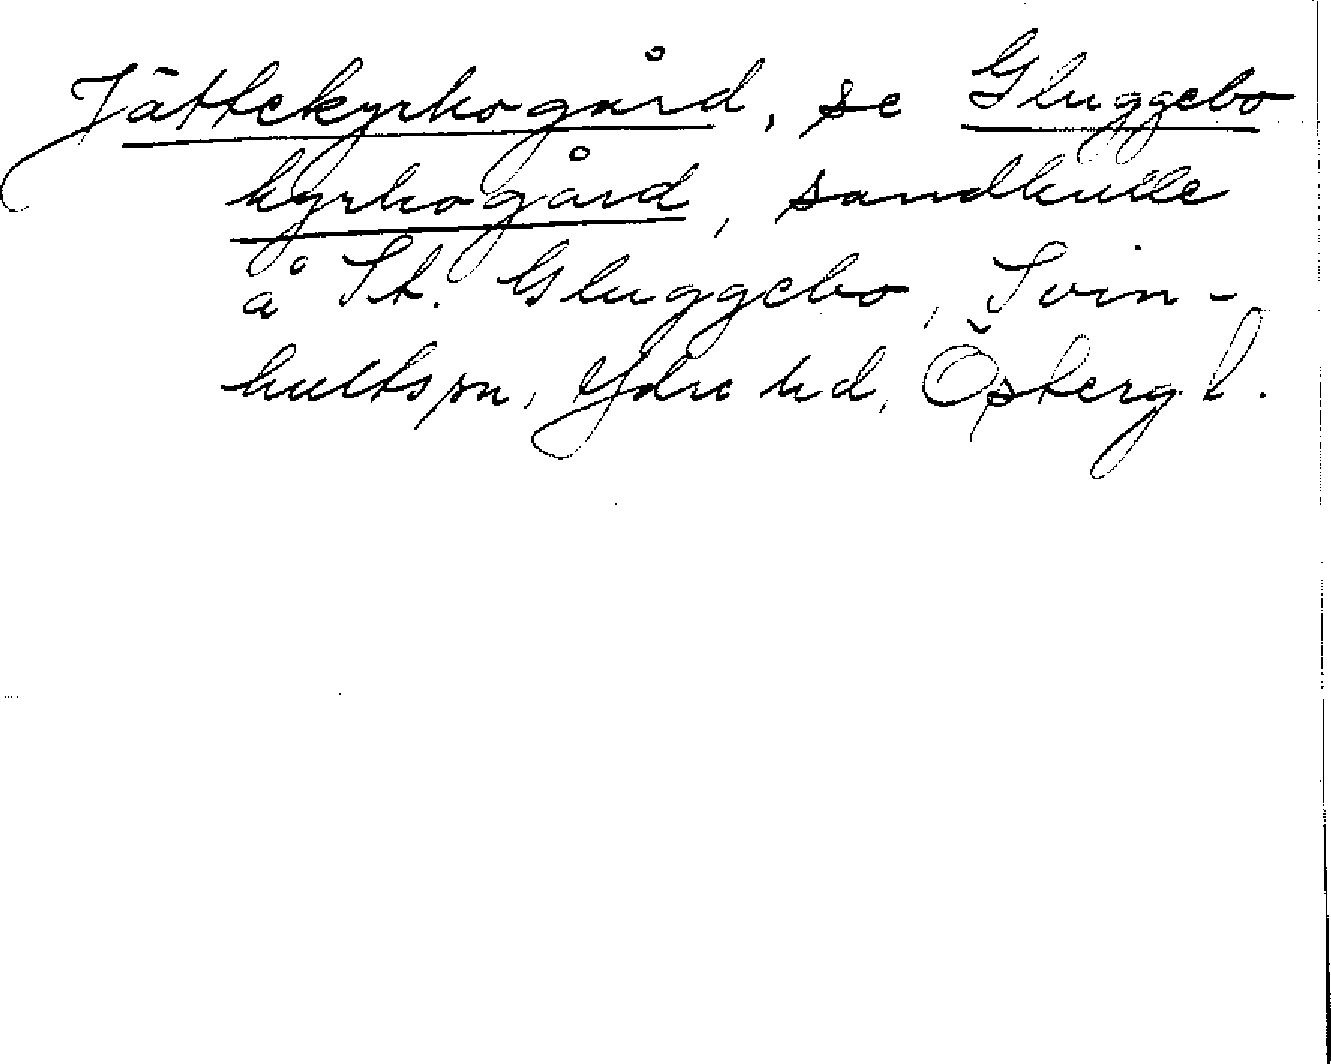 Jättekyrkogård, se Gluggebo
kyrkogård, sandkulle
å St. Gluggebo, Svin-
hultspn, Ydre hd, Östergl.